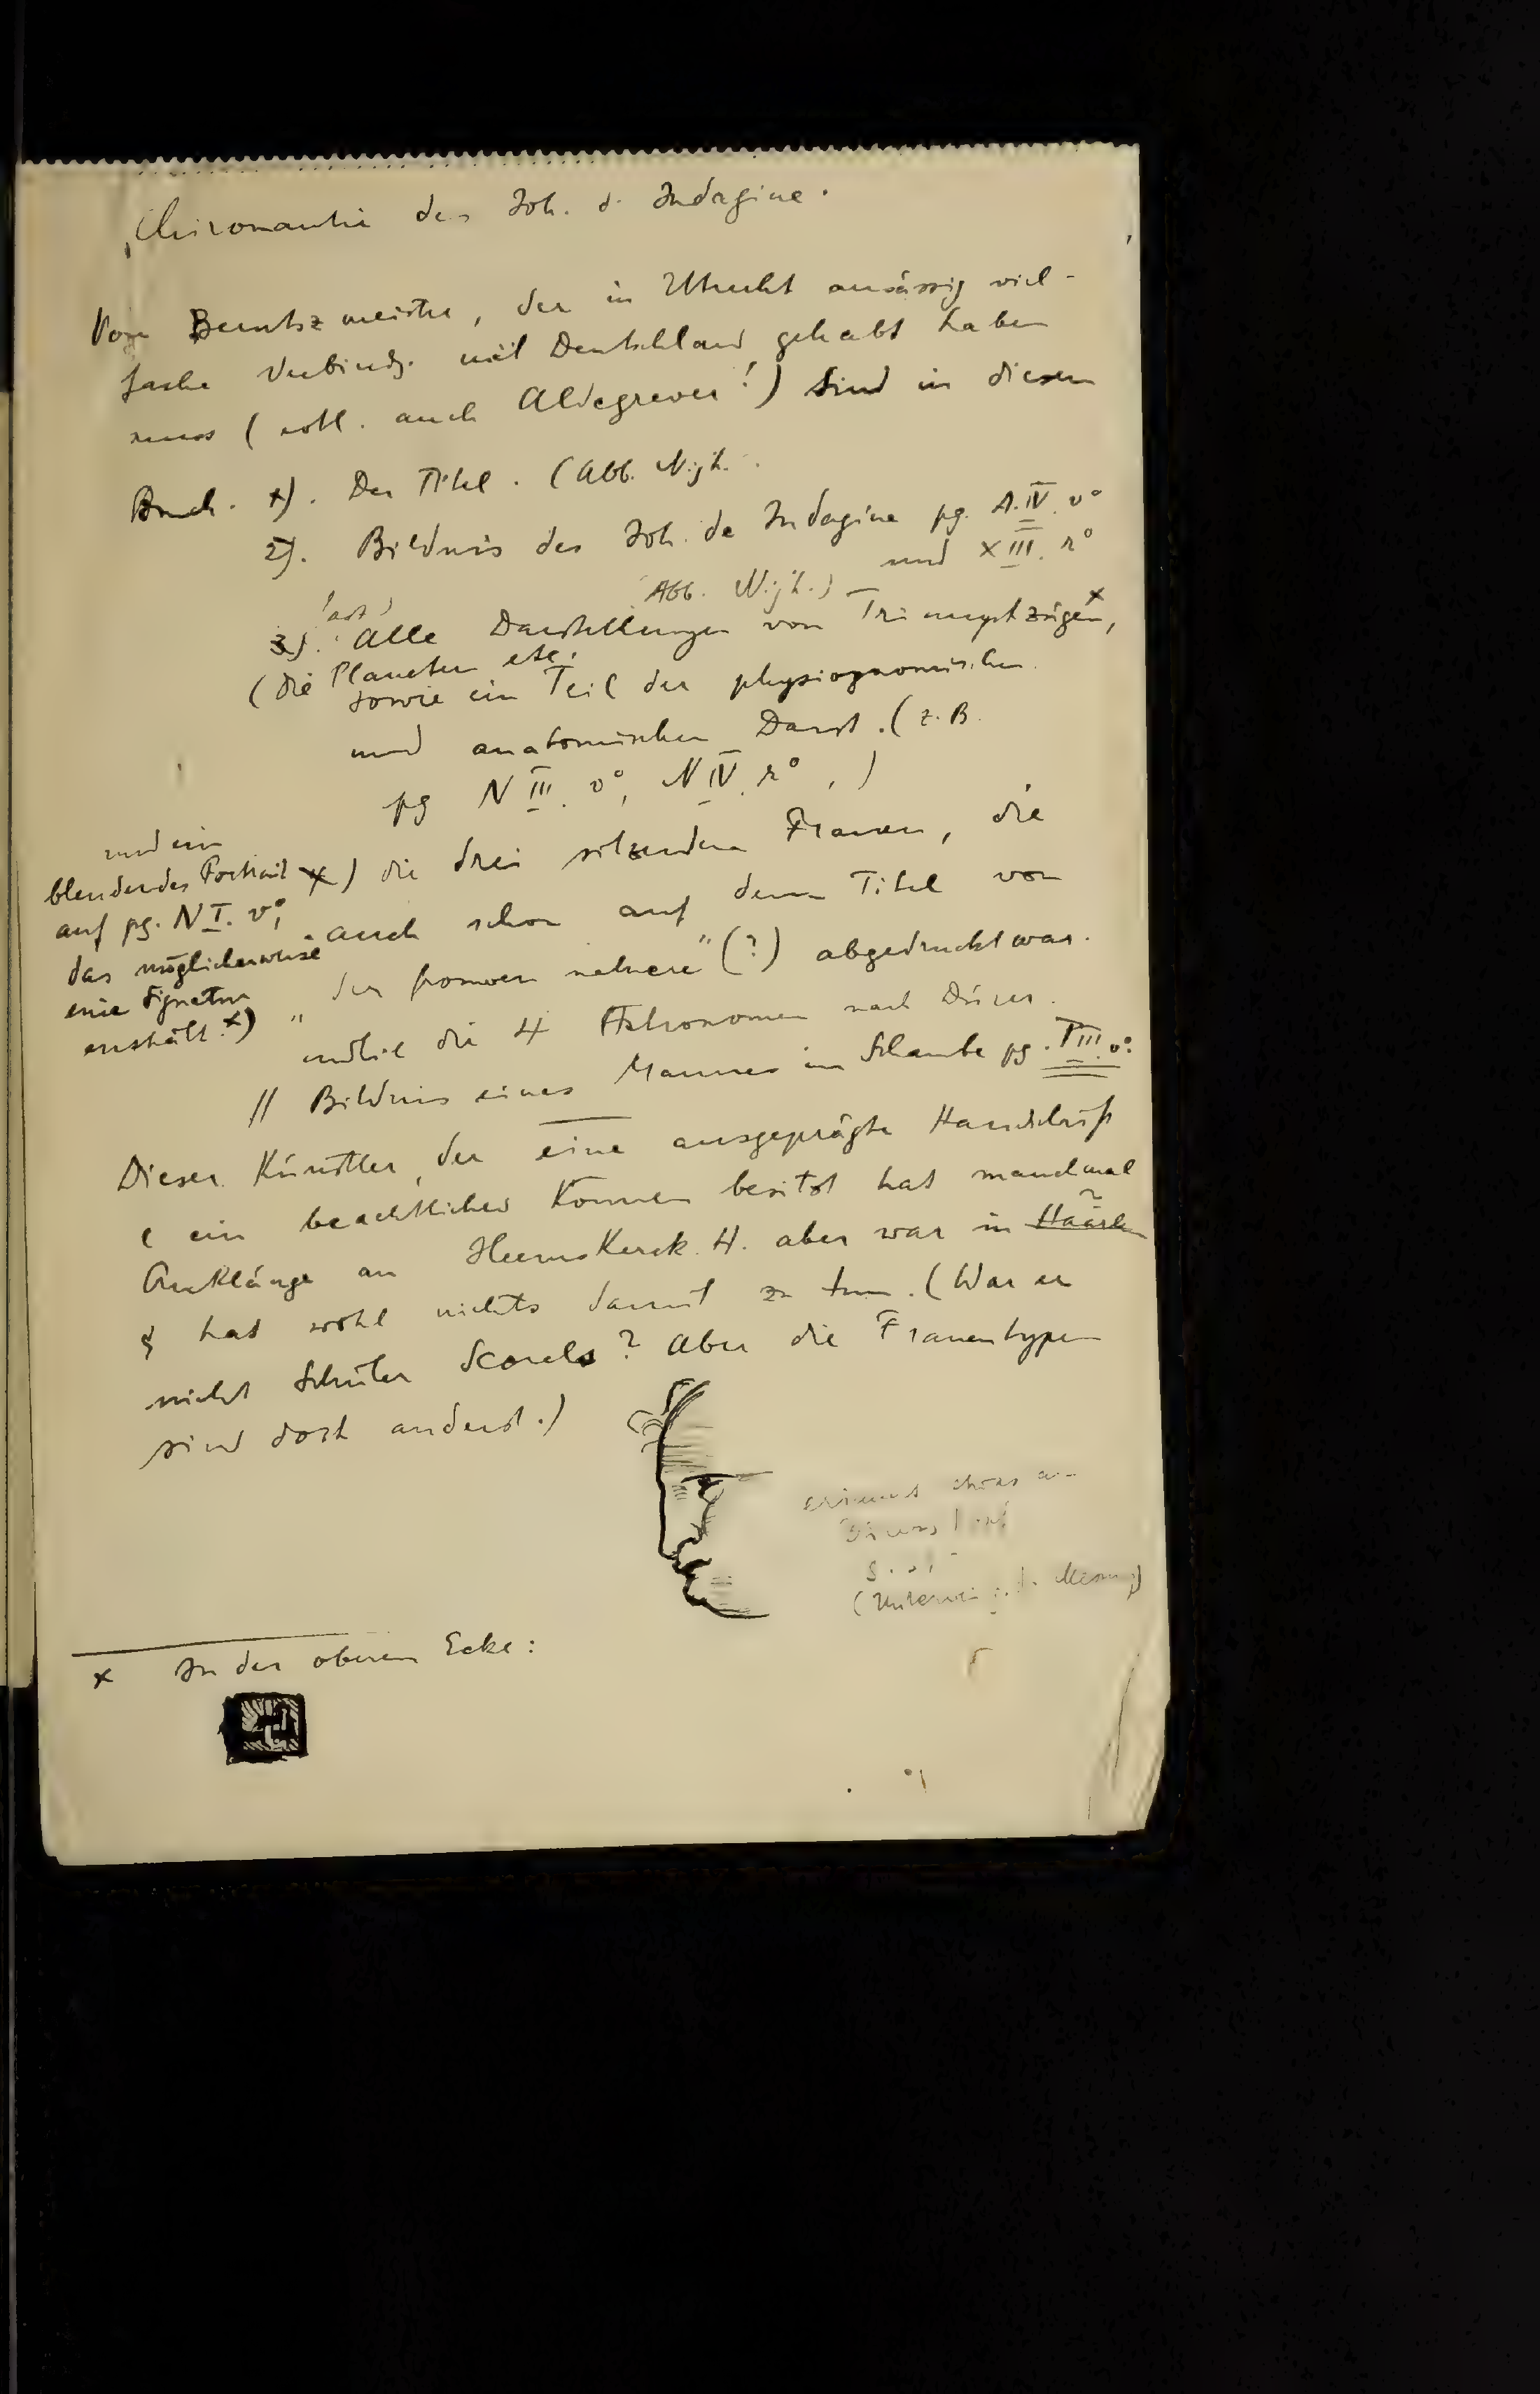 „Chiromantie des Joh. d. Indagine.
Vom Berntszmeister, der in Utrecht ansässig viel-
fache Verbindg. mit Deutschland gehabt haben
muss (vttl. auch Aldegrever!) sind in diesem
Buch. 1). Der Titel. (Abb. Nijh.
2). Bildnis des Joh. de Indagine pg. A.IV. v°
und X III. r°
(Abb. Nijh.)
(fast)
3). Alle Darstellungen von Triumphzügen,x
(die Planeten etc.
sowie ein Teil der physiognomischen
und anatomischen Darst. (z.B.
pg N III. v°, N IV. r°, )
und ein
blendendes Portrait
auf pg. N I. v°,
das möglicherweise
eine Signatur
enthält.x)
x) die drei sitzenden Frauen, die
auch schon auf dem Titel von
„der fromen " (?) abgedruckt war.
endlich die 4 Astronomen nach Dürer.
// Bildnis eines Mannes in Schaube pg. P III. v°.
Dieser Künstler, der eine ausgeprägte Handschrift
& ein beachtliches Können besitzt hat manchmal
Anklänge an Heemskerck. H. aber war in Haarlem
& hat wohl nichts damit zu tun. (War er
nicht Schüler Scorels? Aber die Frauentypen
sind dort anders.)
erinnert etwas an
x In der oberen Ecke: